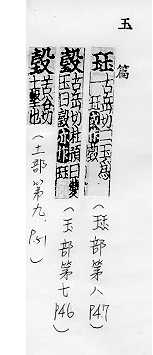 玉篇
珏 古岳切二玉爲一珏或作瑴
(珏部第八 P47)
瑴 古岳切杜預曰雙玉曰瑴亦作珏
(玉部第七 P46)
切土墼也
(土部第九 P51)